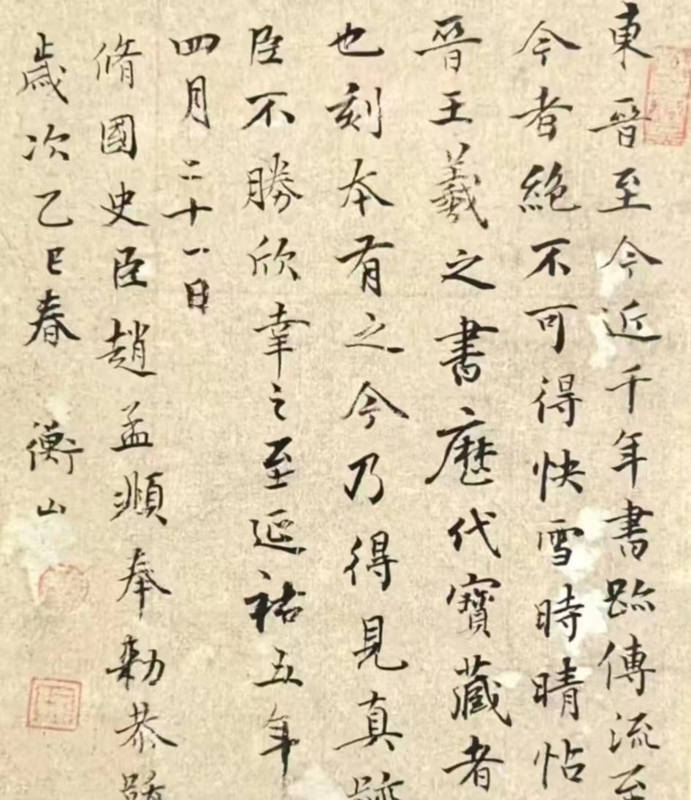 東晉至今近千年書跡傳流至
今者絕不可得快雪時晴帖
晉王羲之書歷代寶藏者
也刻本有之今乃得見真跡
臣不勝欣幸之至延祐五年
四月二十一日
脩國史臣趙孟頫奉勑恭跋
歲次乙巳春 衡山